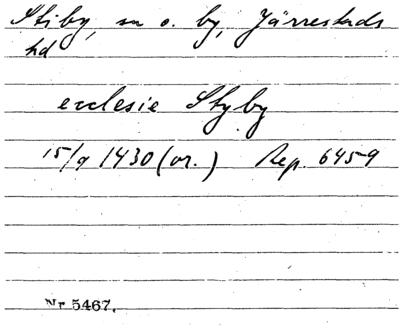 Stiby, sn o. by, Järrestads
hd
ecclesie Styby
15/9 1430 (or.) Rep. 6459
Nr 5467.